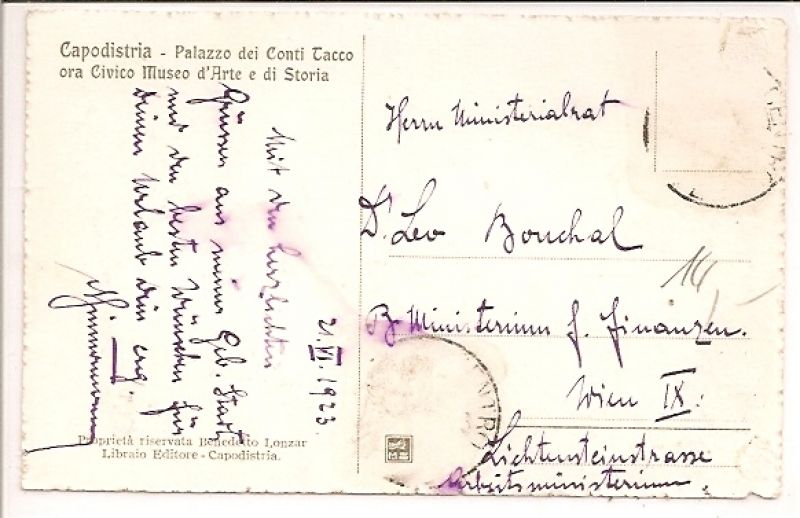 Capodistria - Palazzo dei Conti Tacco
ora Civico Museo d'Arte e di Storia
21. VI. 1923
Mit den herzlichsten
Grüssen aus meiner Geb. Stadt
und den besten Wünschen für
Deinen Urlaub Dein erg.
Proprietà riservata Benedetto Lonzar
Libraio Editore - Capodistria.
Herrn Ministerialrat
Dr Leo Bouchal
B. Ministerium f. Finanzen.
Wien IX.
Lichtensteinstrasse
Arbeitsministerium.
14